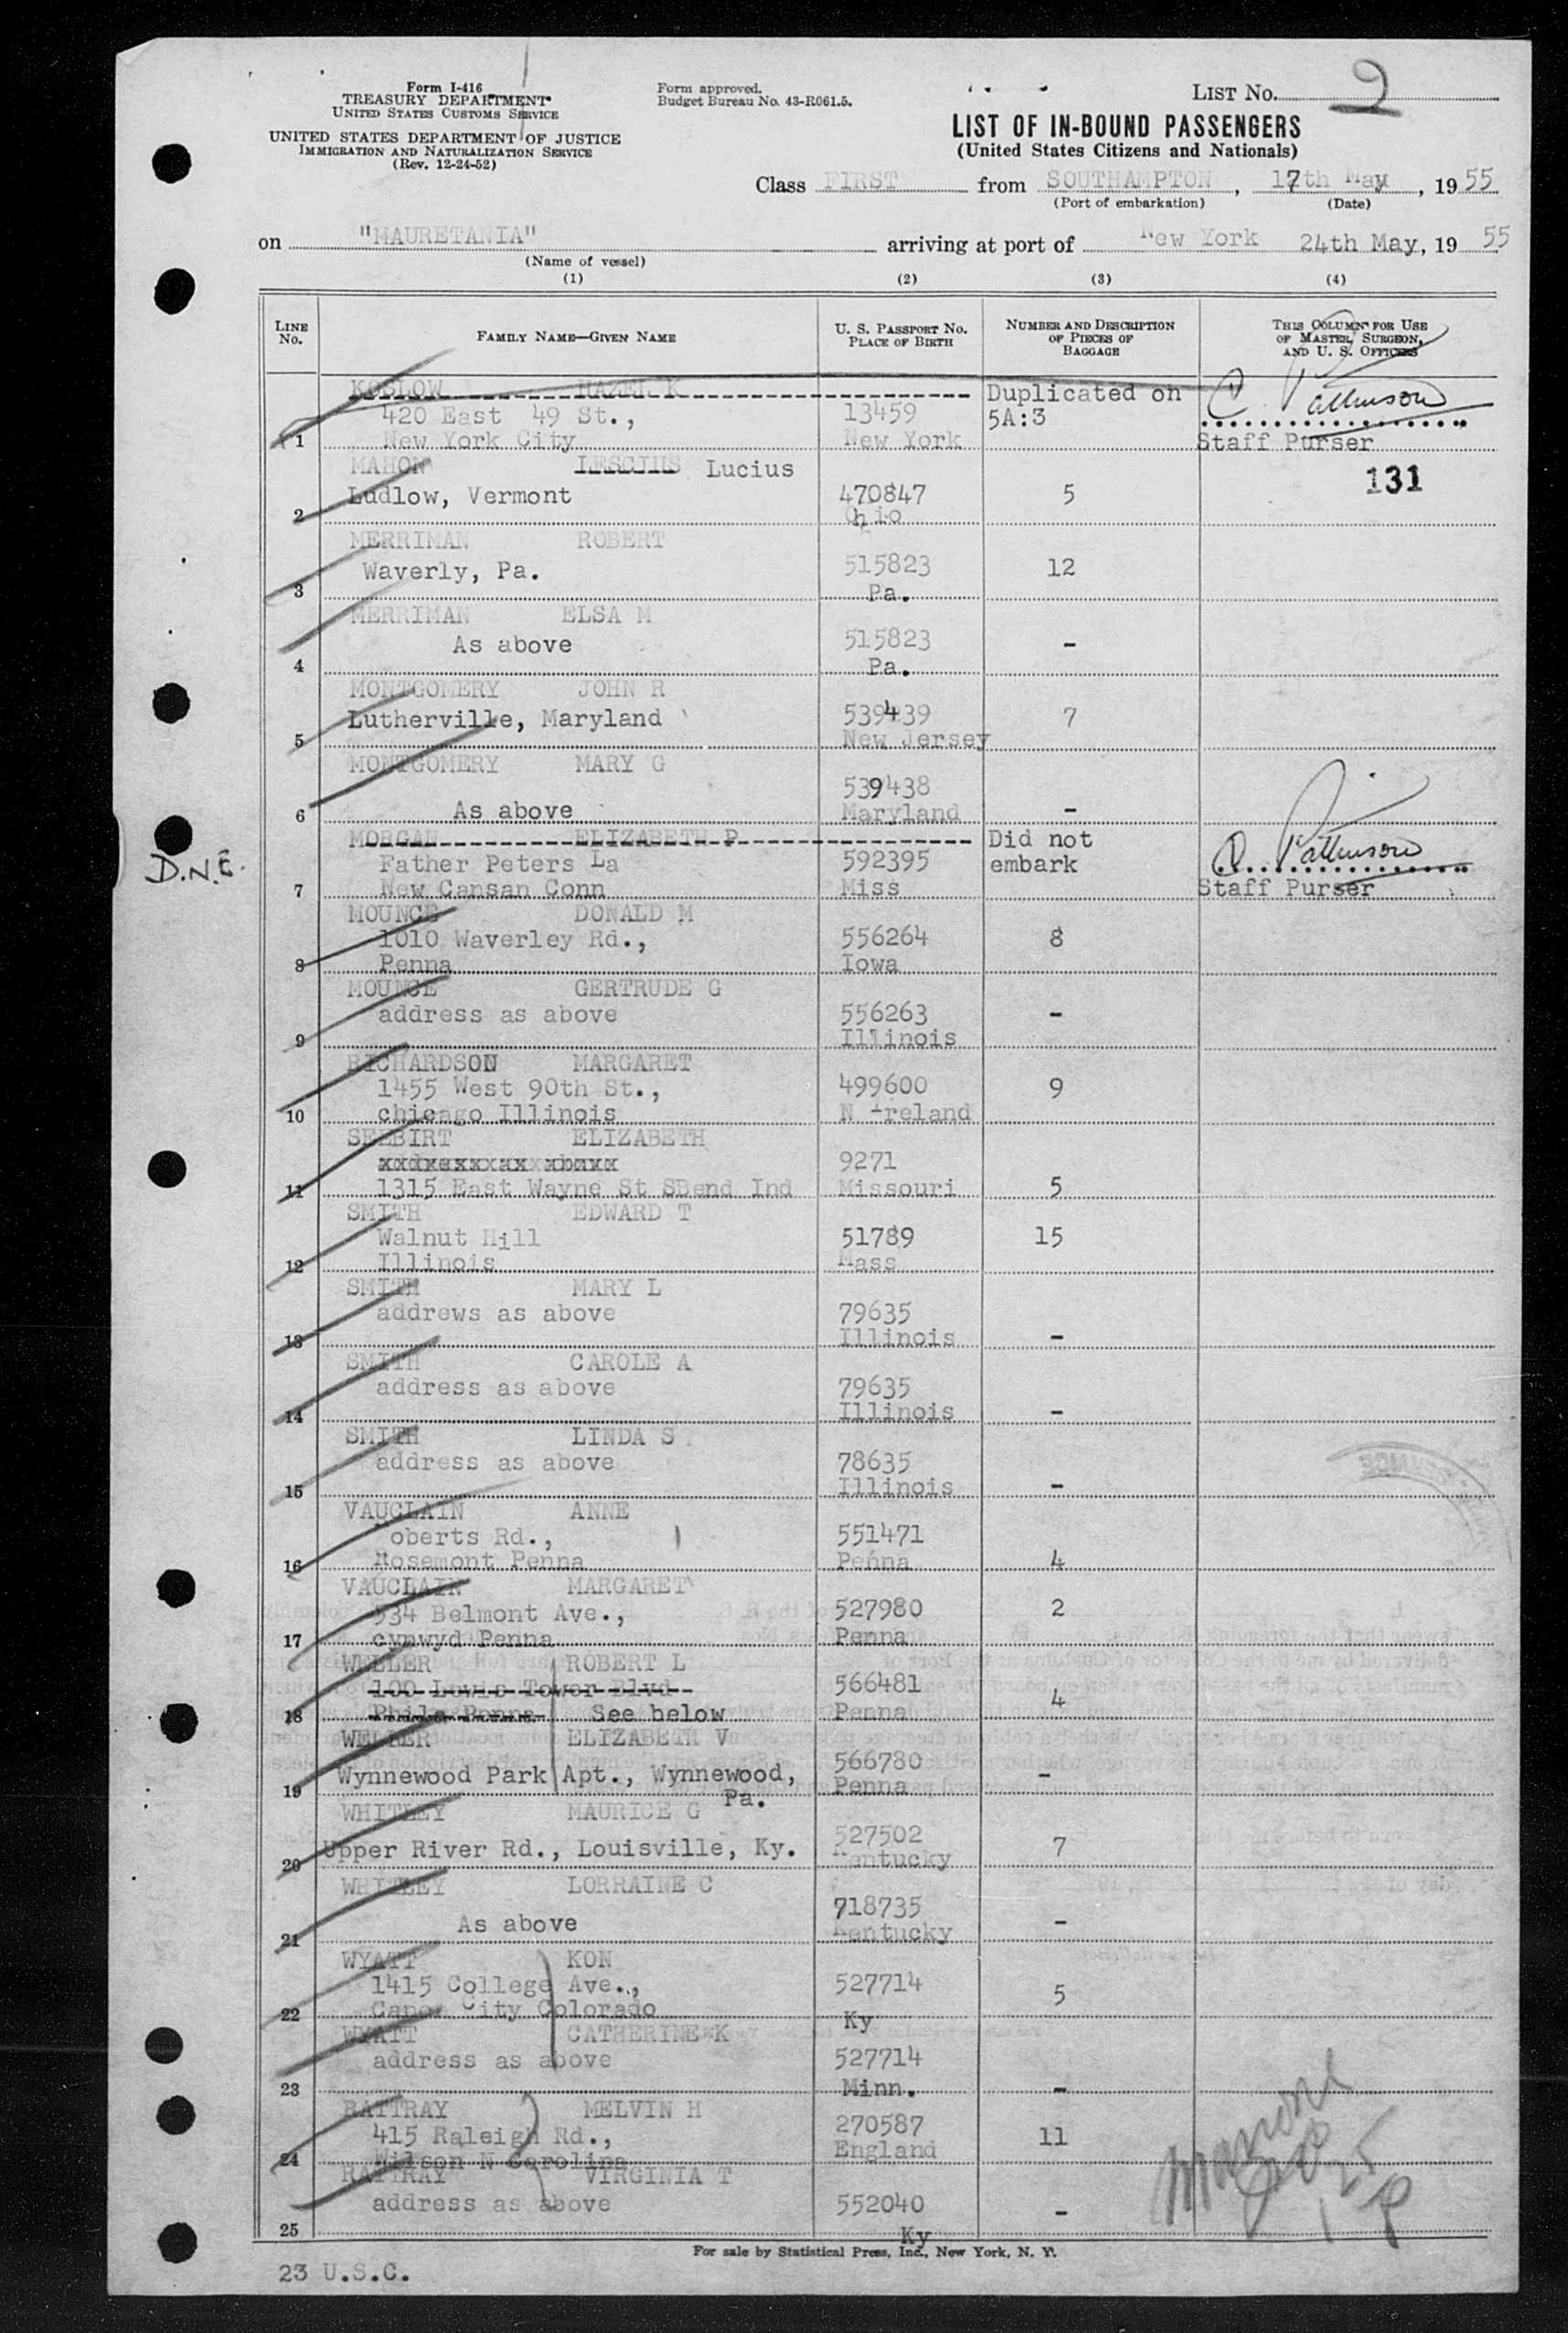 Form I-416
TREASURY DEPARTMENT
UNITED STATES CUSTOMS SERVICE
UNITED STATES DEPARTMENT OF JUSTICE
IMMIGRATION AND NATURALIZATION SERVICE
(Rev. 12-24-52)
Form approved.
Budget Bureau No. 43-R061.5.
LIST NO. 2
LIST OF IN-BOUND PASSENGERS
(United States Citizens and Nationals)
Class FIRST from SOUTHAMPTON, 17th May, 1955
(Port of embarkation) (Date)
on "MAURETANIA" arriving at port of New York 24th May, 1955
(Name of vessel)
(1) (2) (3) (4)
LINE No. FAMILY NAME—GIVEN NAME U. S. PASSPORT NO. PLACE OF BIRTH NUMBER AND DESCRIPTION OF PIECES OF BAGGAGE THIS COLUMN FOR USE OF MASTER, SURGEON, AND U. S. OFFICERS
KOSLOW HAZEL K Duplicated on
420 East 49 St., 13459 5A:3 C. Patkinson
1 New York City New York Staff Purser
MAHON Lucius 131
Ludlow, Vermont 470847 5
2 Ohio
MERRIMAN ROBERT
Waverly, Pa. 515823 12
3 Pa.
MERRIMAN ELSA M
As above 515823 -
4 Pa.
MONTGOMERY JOHN R
Lutherville, Maryland 539439 7
5 New Jersey
MONTGOMERY MARY G
539438
6 As above Maryland -
MORGAN ELIZABETH P Did not
D.N.E. Father Peters La 592395 embark Patkinson
7 New Cansan Conn Miss Staff Purser
MOUNCE DONALD M
1010 Waverley Rd., 556264 8
8 Penna Iowa
MOUNCE GERTRUDE G
address as above 556263 -
9 Illinois
RICHARDSON MARGARET
1455 West 90th St., 499600 9
10 chicago Illinois N Ireland
SELBIRT ELIZABETH
9271
11 1315 East Wayne St SBend Ind Missouri 5
SMITH EDWARD T
Walnut Hill 51789 15
12 Illinois Mass
SMITH MARY L
addrews as above 79635
13 Illinois -
SMITH CAROLE A
address as above 79635
14 Illinois -
SMITH LINDA S
address as above 78635
15 Illinois -
VAUCLAIN ANNE
oberts Rd., 551471
16 Rosemont Penna Penna 4
VAUCLAIN MARGARET
534 Belmont Ave., 527980 2
17 cynwyd Penna Penna
WELLER ROBERT L
100 Lewis Tower Blvd 566481
18 Phila Penna See below Penna 4
WELLER ELIZABETH V
Wynnewood Park Apt., Wynnewood, 566780 -
19 Pa. Penna
WHITLEY MAURICE G
Upper River Rd., Louisville, Ky. 527502 7
20 Kentucky
WHITLEY LORRAINE C
As above 718735 -
21 Kentucky
WYATT KON
1415 College Ave., 527714 5
22 Canon City Colorado Ky
WYATT CATHERINE K
address as above 527714
23 Minn. -
RATTRAY MELVIN H
415 Raleigh Rd., 270587 11
24 Wilson N Carolina England
RATTRAY VIRGINIA T
address as above 552040 -
25 Ky
For sale by Statistical Press, Inc., New York, N. Y.
23 U.S.C.